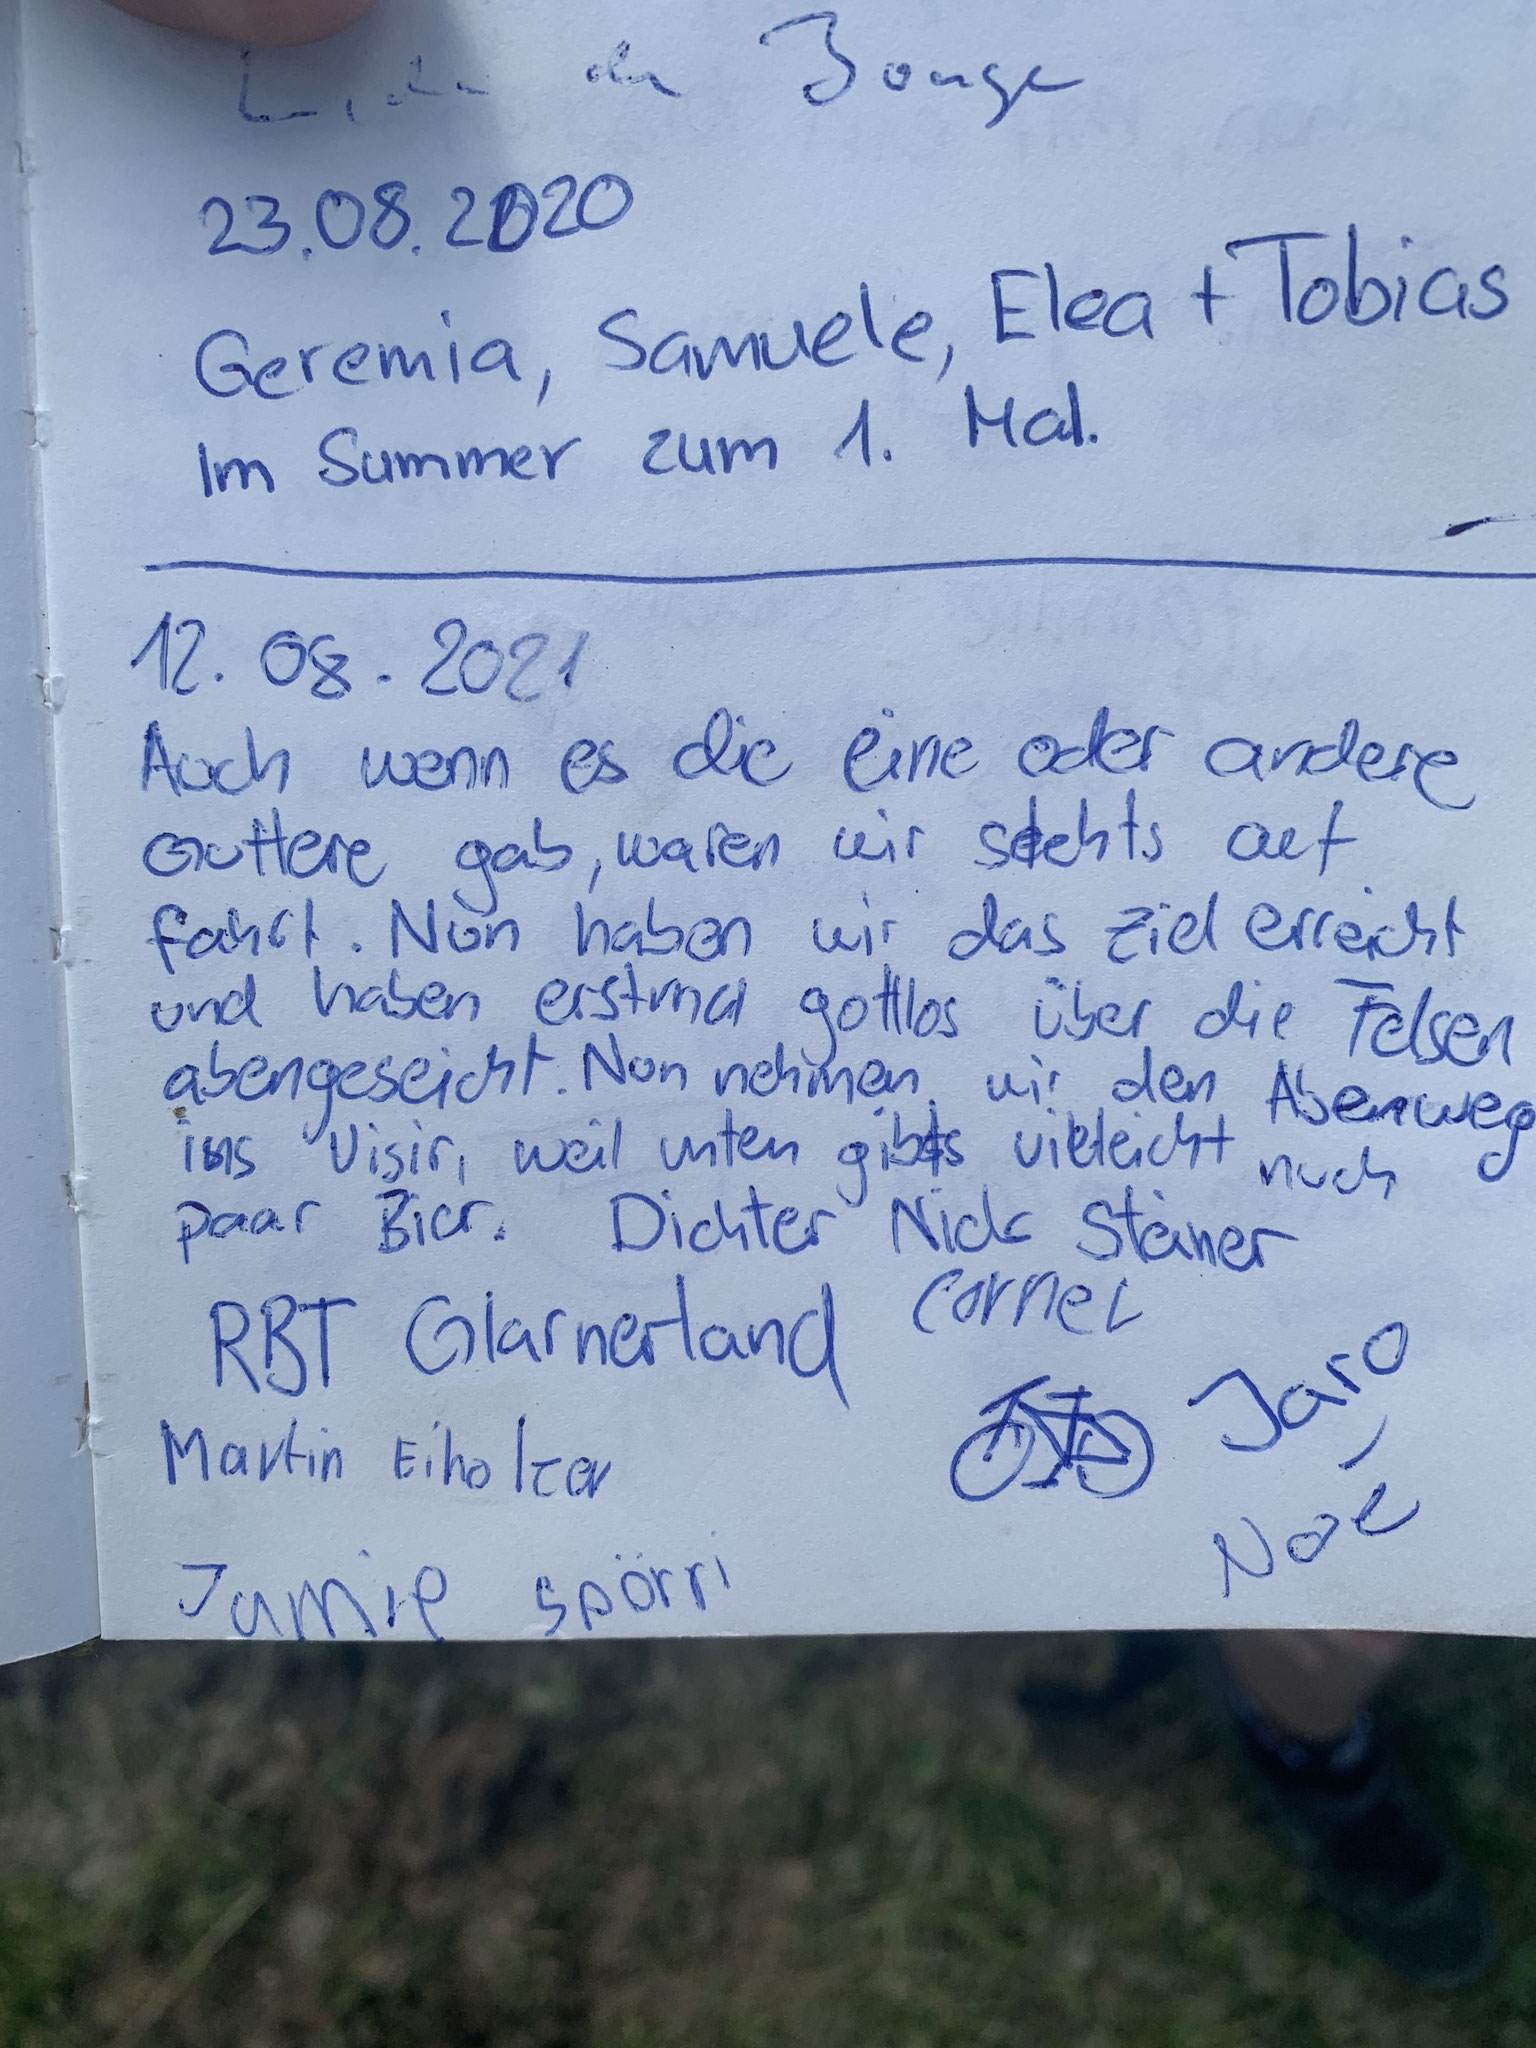 de Jonge
23.08.2020
Geremia, Samuele, Elea + Tobias
Im Summer zum 1. Mal.
12.08.2021
Auch wenn es die eine oder andere
Guttere gab, waren wir stehts auf
fahrt. Nun haben wir das Ziel erreicht
und haben erstmal gottlos über die Felsen
abengeseicht. Nun nehmen wir den Abenweg
ins Visir, weil unten gibts vielleicht nuch
paar Bier. Dichter Nick Steiner
RBT Glarnerland Cornel
Jaro
Martin Eiholzer
Noé
Jamie Spörri